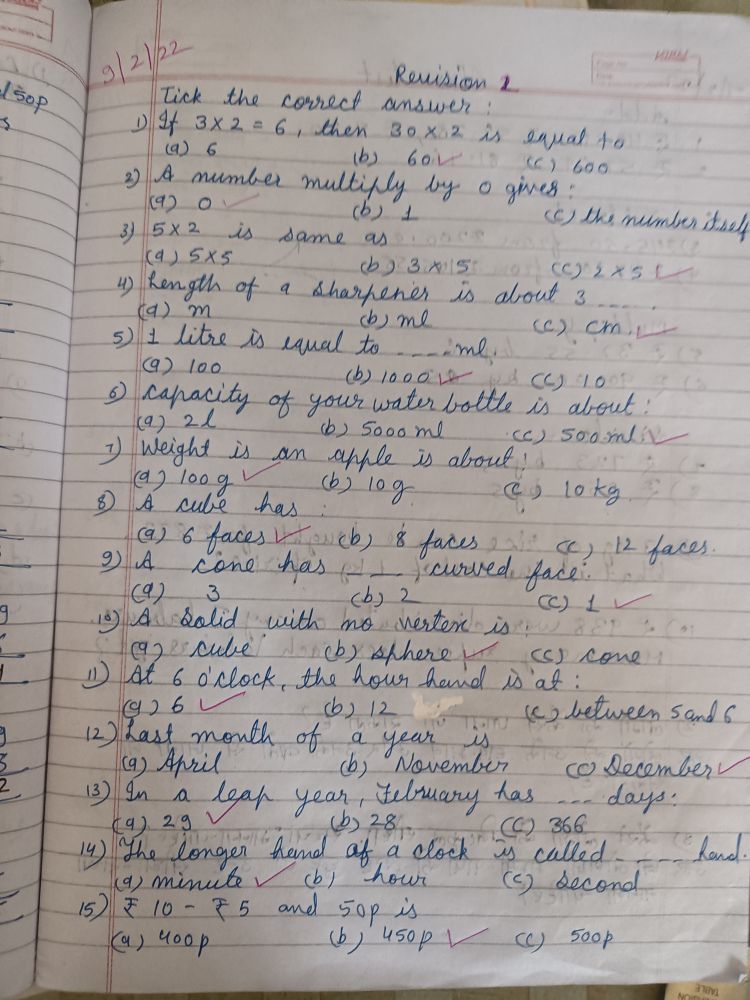 50p
9/2/22
Revision 1
Tick the correct answer :
1) If 3 x 2 = 6, then 30 x 2 is equal to
(a) 6 (b) 60 ✓ (c) 600
2) A number multiply by 0 gives :
(a) 0 ✓ (b) 1 (c) the number itself
3) 5 x 2 is same as
(a) 5 x 5 (b) 3 x 5 (c) 2 x 5 ✓
4) Length of a sharpener is about 3 ....
(a) m (b) ml (c) cm ✓
5) 1 litre is equal to .... ml.
(a) 100 (b) 1000 ✓ (c) 10
6) capacity of your water bottle is about :
(a) 2l (b) 5000 ml (c) 500 ml ✓
7) Weight is an apple is about :
(a) 100 g ✓ (b) 10 g (c) 10 kg
8) A cube has :
(a) 6 faces ✓ (b) 8 faces (c) 12 faces.
9) A cone has _ _ _ curved face.
(a) 3 (b) 2 (c) 1 ✓
10) A solid with no vertex is :
(a) cube (b) sphere ✓ (c) cone
11) At 6 o'clock, the hour hand is at :
(a) 6 ✓ (b) 12 (c) between 5 and 6
12) Last month of a year is
(a) April (b) November (c) December ✓
13) In a leap year, February has ... days :
(a) 29 ✓ (b) 28 (c) 366
14) The longer hand of a clock is called .... hand.
(a) minute ✓ (b) hour (c) second
15) ₹ 10 - ₹ 5 and 50p is
(a) 400p (b) 450p ✓ (c) 500p